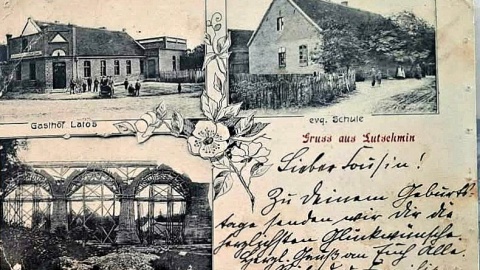 Gasthof Latos
evg. Schule
Gruss aus Lutschmin
Lieber Cousin!
Zu Deinem Geburts-
tage senden wir Dir die
herzlichsten Glückwünsche.
Herzl. Gruß an Euch Alle.